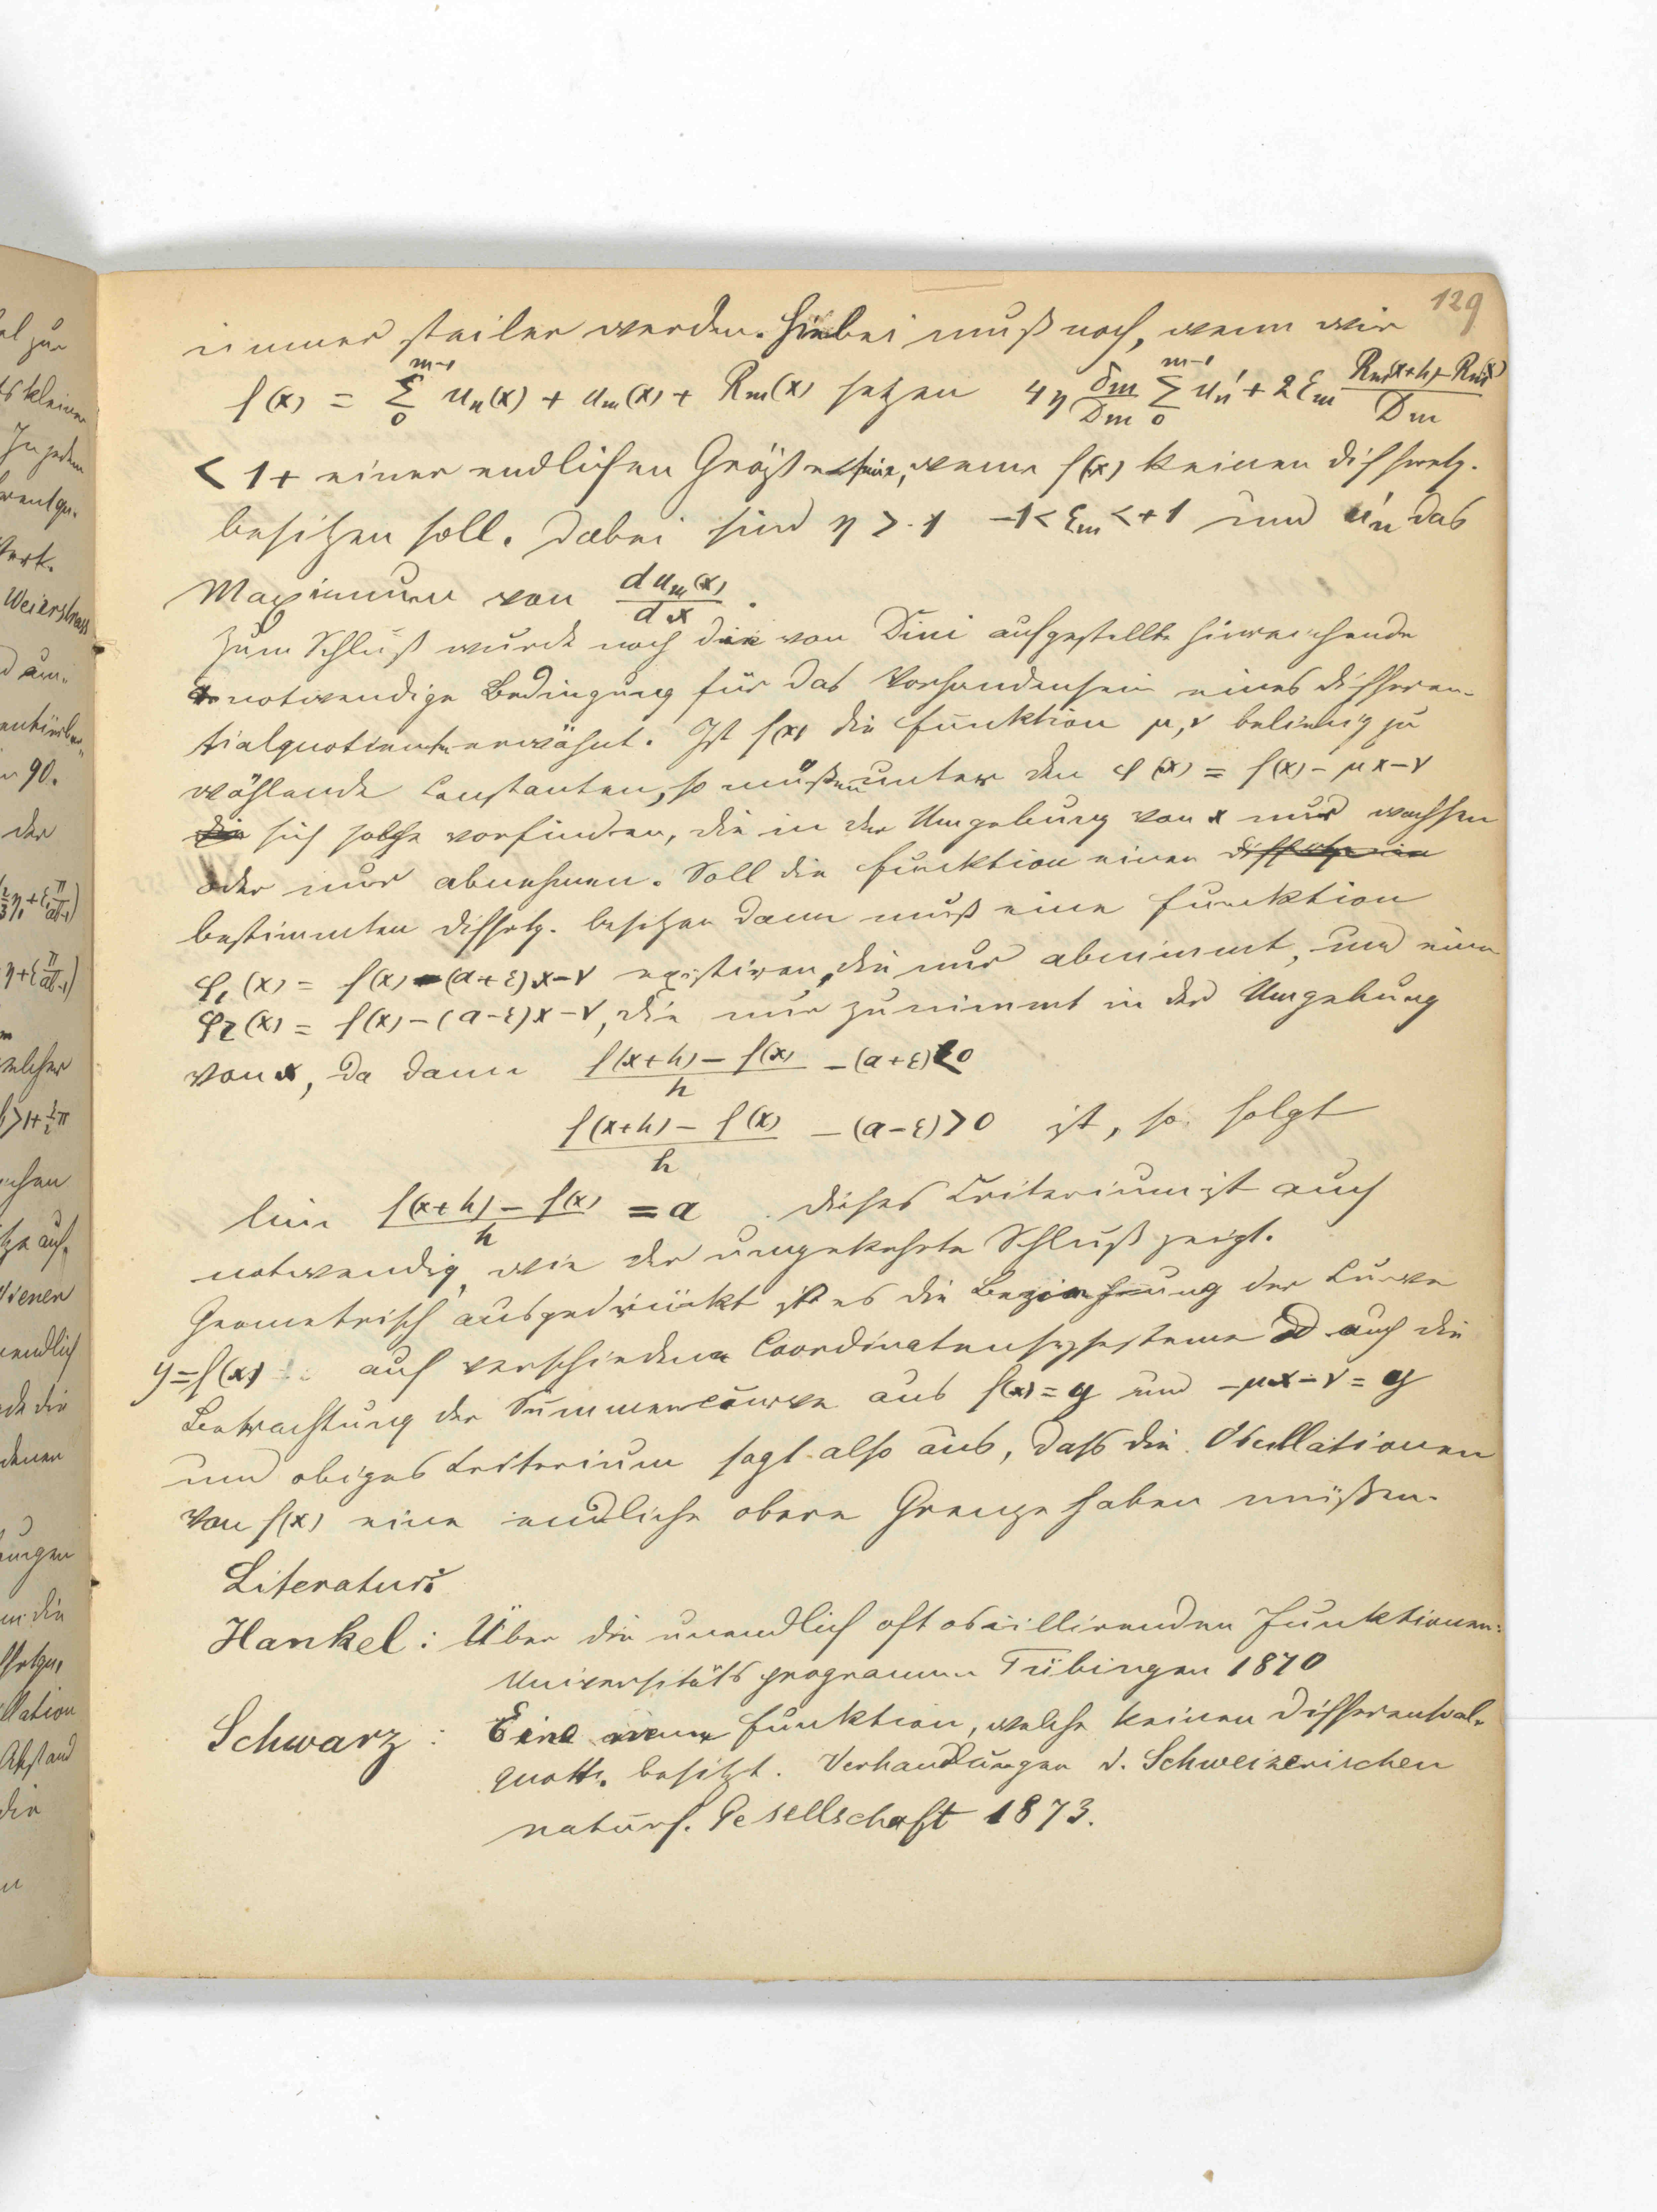 129
immer steiler werden. Hiebei muß noch, wenn wir
f(x) = Σ_0^{m-1} u_n(x) + u_m(x) + R_m(x) setzen 4η δ_m/D_m Σ_0^{m-1} u'_n + 2ε_m (R_m(x+h) - R_m(x))/D_m
< 1 + einer endlichen Größe sein, wenn f(x) keinen diffrntq.
besitzen soll. Dabei sind η > 1 -1 < ε_m < +1 und u'_n das
Maximum von du_m(x)/dx.
Zum Schluß wurde noch die von Dini aufgestellte hinreichende
notwendige Bedingung für das Vorhandensein eines differen-
tialquotienten erwähnt. Ist f(x) die Funktion μ, ν beliebig zu
wählende Constanten, so müßen unter den φ(x) = f(x) - μx - ν
sich solche vorfinden, die in der Umgebung von x nur wachsen
oder nur abnehmen. Soll die Funktion einen
bestimmten diffrtq. besitzen dann muß eine Funktion
φ_1(x) = f(x) - (a+ε)x - ν existiren, die nur abnimmt, und eine
φ_2(x) = f(x) - (a-ε)x - ν, die nur zunimmt in der Umgebung
von x, da dann (f(x+h) - f(x))/h - (a+ε) < 0
(f(x+h) - f(x))/h - (a-ε) > 0 ist, so folgt
lim (f(x+h) - f(x))/h = a. Dieses Criterium ist auch
notwendig, wie der umgekehrte Schluß zeigt.
Geometrisch ausgedrückt ist es die Beziehung der Curve
y = f(x) auf verschiedene Coordinatensysteme od auch die
Betrachtung der Summencurve aus f(x) = y und -μx - ν = y
und obiges Criterium sagt also aus, dass die Oscillationen
von f(x) eine endliche obere Grenze haben müßen.
Literatur:
Hankel: Über die unendlich oft oscillirenden Funktionen:
Universitäts programm Tübingen 1870
Schwarz: Eine neue Funktion, welche keinen differential-
quott. besitzt. Verhandlungen d. Schweizerischen
naturf. Gesellschaft 1873.